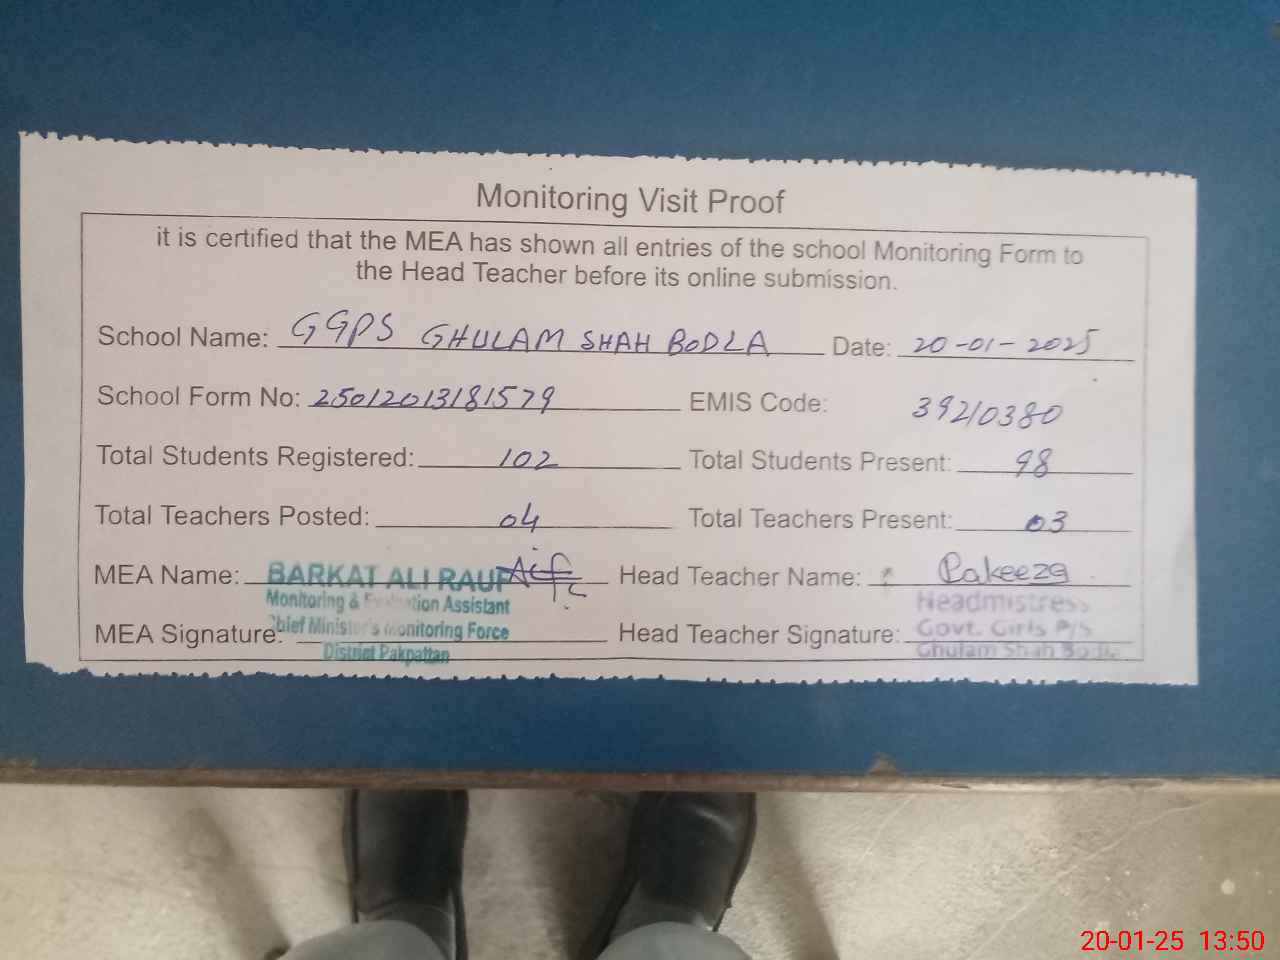 Monitoring Visit Proof
it is certified that the MEA has shown all entries of the school Monitoring Form to
the Head Teacher before its online submission.
School Name: GGPS GHULAM SHAH BODLA Date: 20-01-2025
School Form No: 25012013181579 EMIS Code: 39210380
Total Students Registered: 102 Total Students Present: 98
Total Teachers Posted: 04 Total Teachers Present: 03
MEA Name: BARKAT ALI RAUF Head Teacher Name: Pakeeza
Monitoring & Evaluation Assistant Headmistress
MEA Signature: Chief Minister's Monitoring Force Head Teacher Signature: Govt. Girls P/S
District Pakpattan Ghulam Shah Bodla
20-01-25 13:50